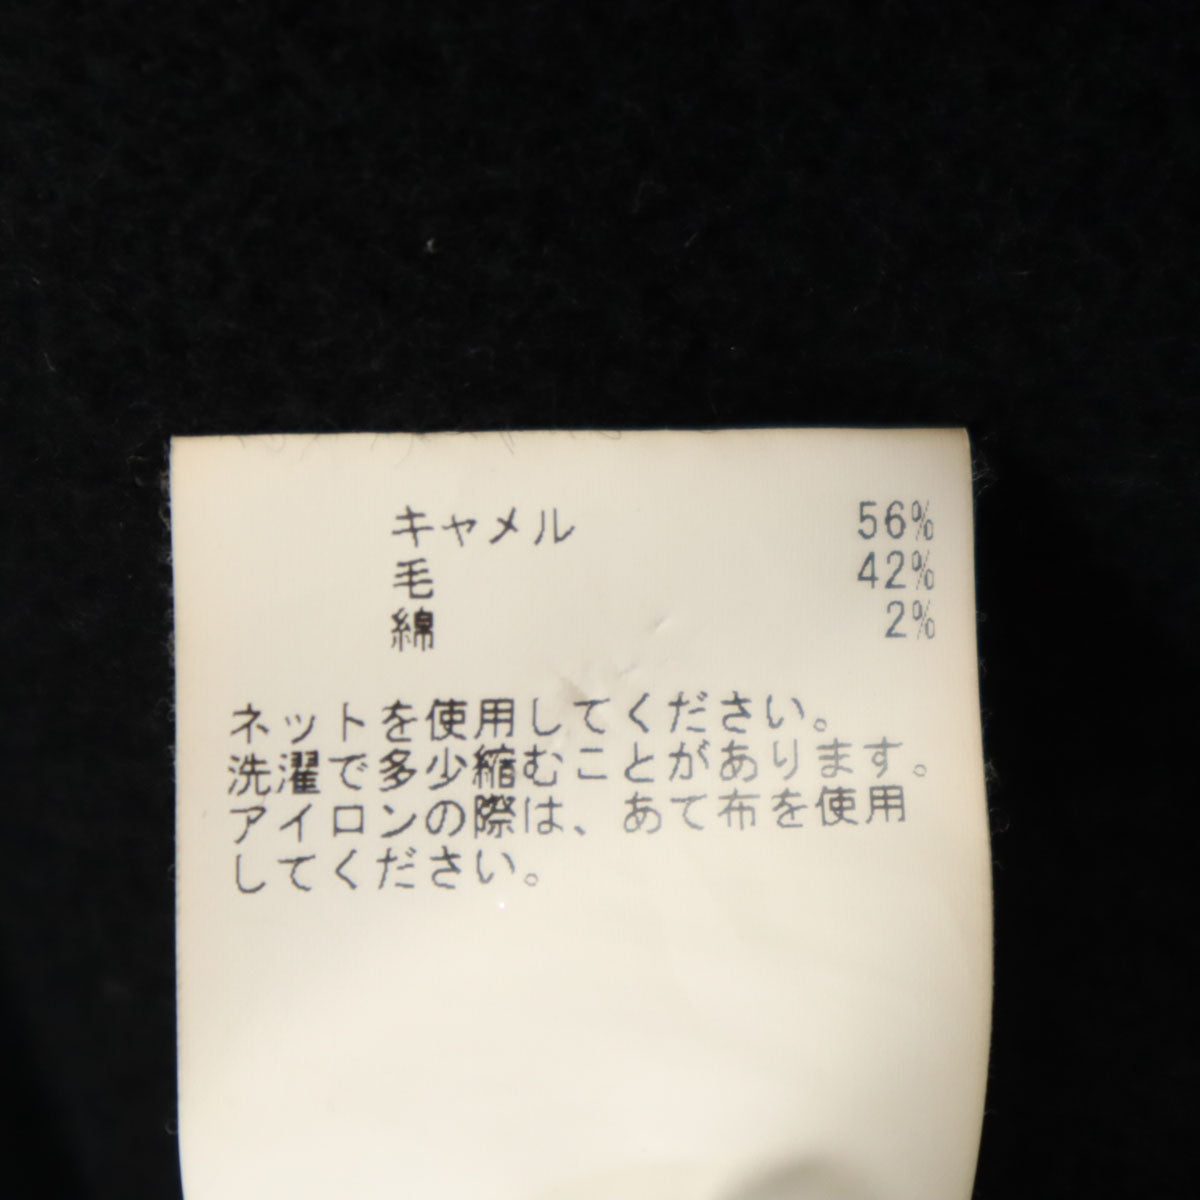 キャメル 56%
毛 42%
綿 2%
ネットを使用してください。
洗濯で多少縮むことがあります。
アイロンの際は、あて布を使用
してください。